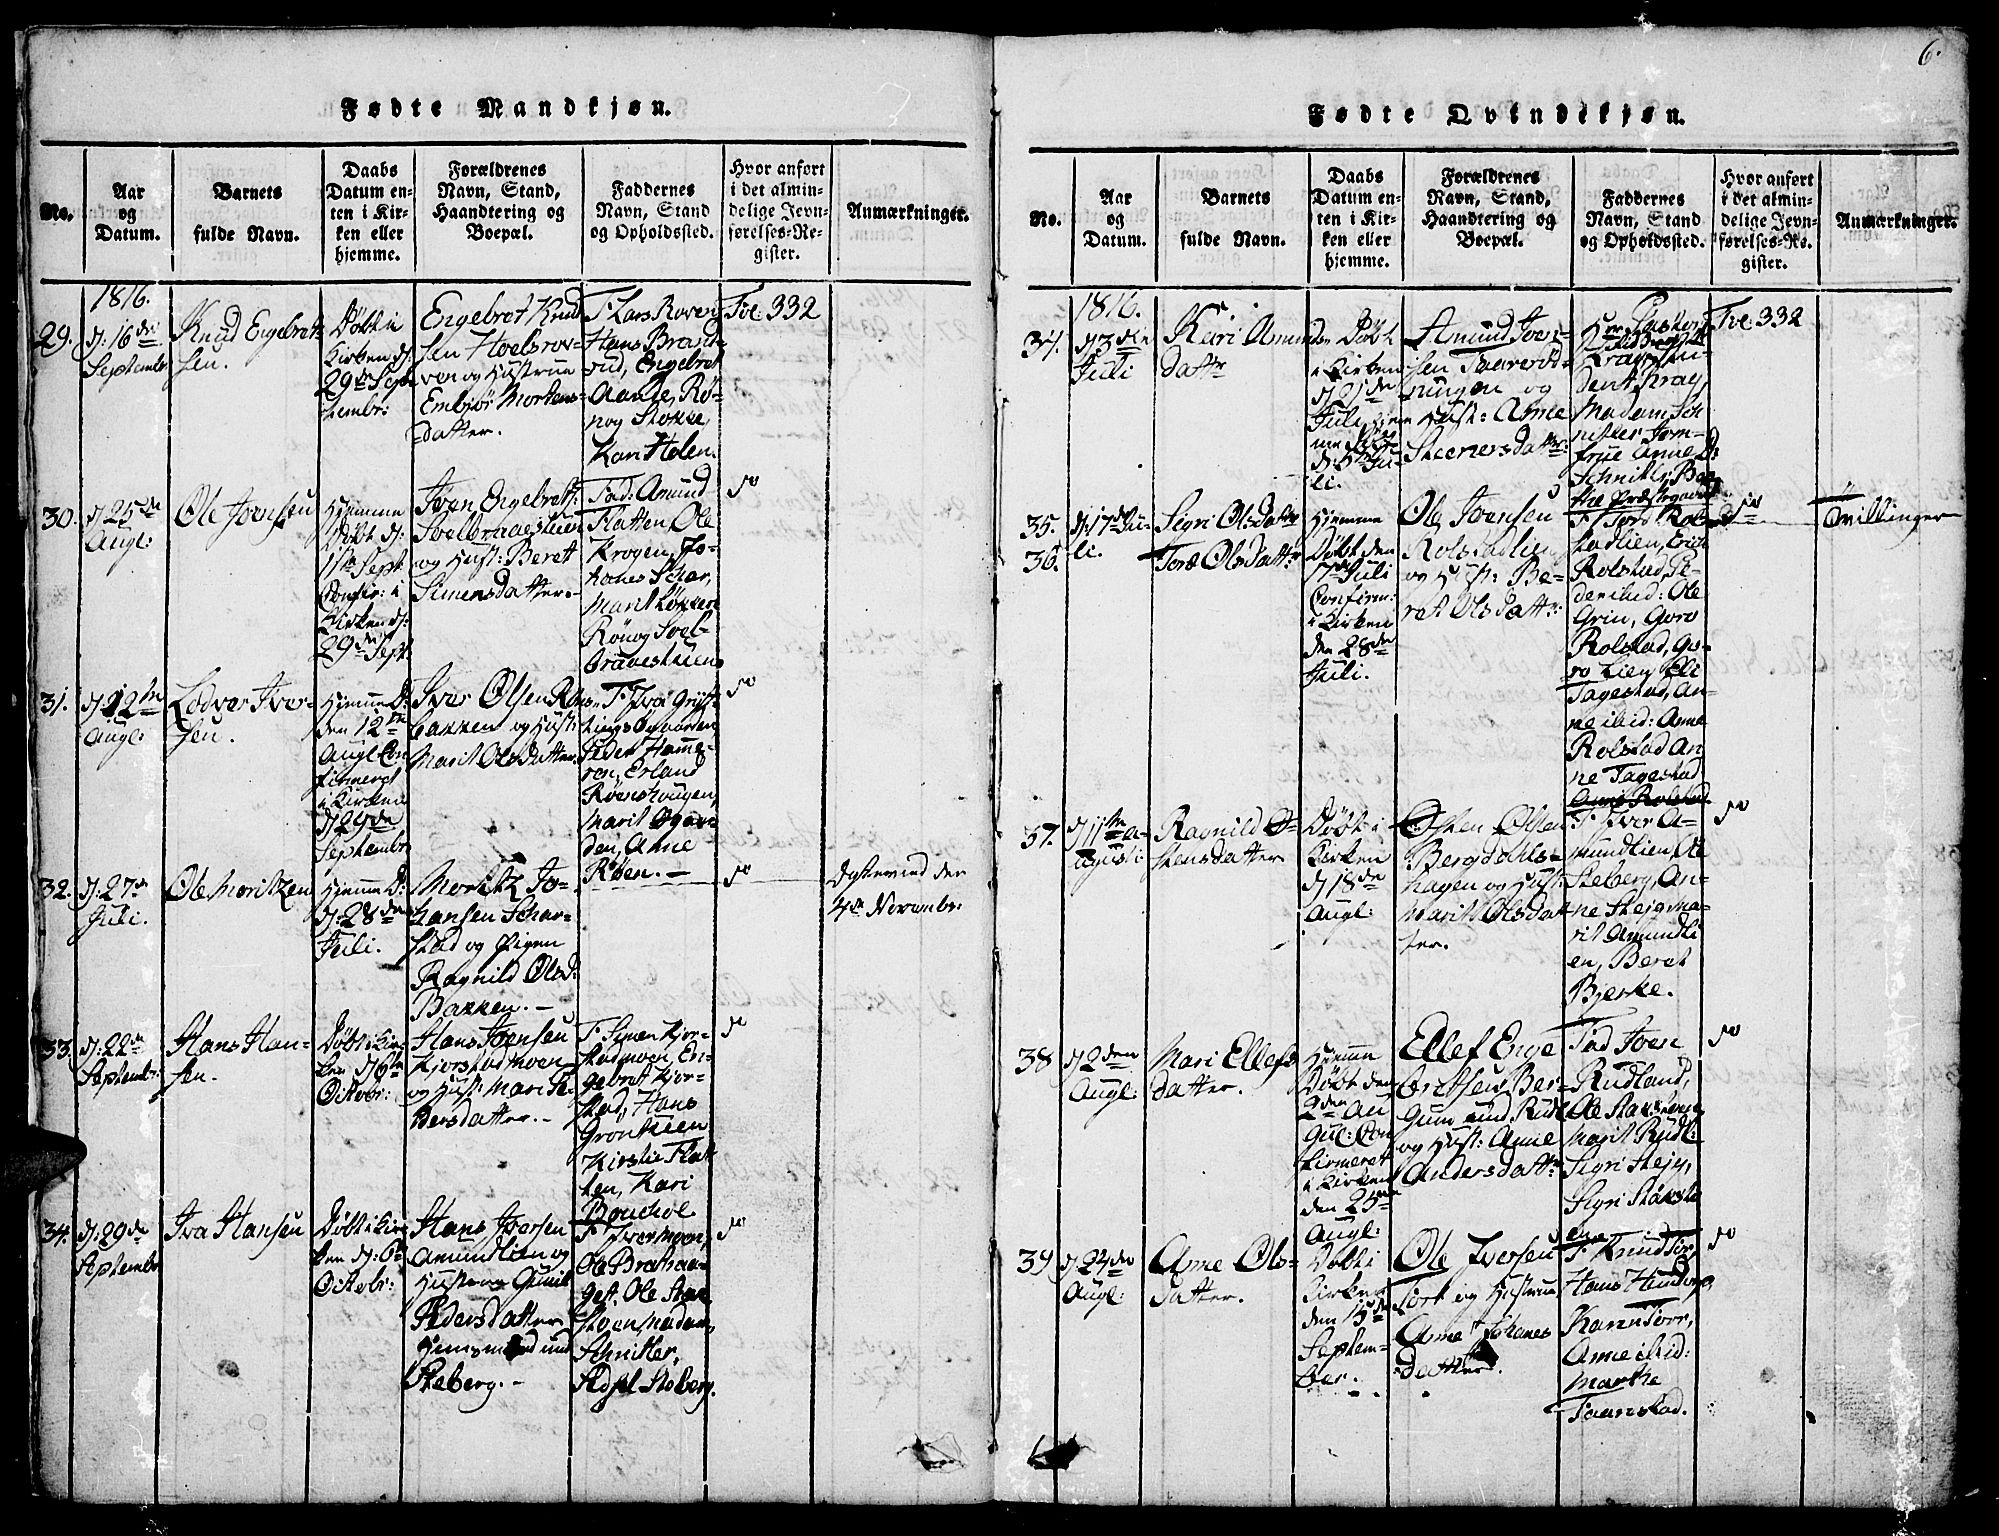 6.
Fødte Mandkjøn.
No.
Aar
og
Datum.
Barnets
fulde Navn.
Daabs
Datum en-
ten i Kir-
ken eller
hjemme.
Forældrenes
Navn, Stand,
Haandtering og
Boepæl.
Faddernes
Navn, Stand
og Opholdssted.
Hvor anført
i det almin-
delige Jevn-
førelses-Re-
gister.
Anmærkninger.
1816.
29.
d: 16de
Septembr:
Knud Engebret-
sen.
Døbt i
Kirken d:
29de Sep-
tembr:
Engebret Knud
sen Hoelsro-
ven og Hustrue
Embjør Mortens-
datter.
F. Lars Roven
Hans Brand-
rud, Engebret
Aande, Rø-
nog Stokke,
Kari Holen.
Fol: 332
30.
d: 25de
Augt:
Ole Joensen
hjemme
døbt d:
1ste Sept
Confir: i
Kirken d:
29de Sept:
Joen Engebrets:
Solbraaestuen
og Hust: Beret
Simensdatter.
Fad: Amund
Flatten, Ole
Krogen, Jo-
hanes Schar,
Marit Løkken
Rönog Soel-
braaestuen
do
31.
d: 12te
Augt:
Lodver Iver-
sen.
hjemme D:
den 12te
Augt Con-
firmeret
i Kirken
d 29de
Septembr
Iver Olsen Røns-
bakken og Hust:
Marit Olsdatter.
Peder Hame-
ren, Erland
Rønshougen,
Marit Øgaar-
den, Anne
Røen. -
do
32.
d: 27de
Juli.
Ole Moritzen
hjemme D:
d: 28de
Juli.
Moritz Jo-
hansen Schar-
stad og Pigen
Ragnild Olsd:
Bakken. -
do
4de Novembr:
33.
d: 22de
Septembr:
Hans Han-
sen.
Døbt i Kir-
ken d 6te
Octobr:
Hans Joensen
Kjorstadmoen
og Hust: Mari Si-
versdatter. -
F. Simen Kjor-
stadmoen, En-
gebret Kjor-
stad, Hans
Gronlien
Kirstie Flat-
ten, Kari
Bouchol
do
34.
d: 29de
Septembr
Iva Hansen
Døbt i Kir-
ken d: 6te
Octobr:
Hans Iversen
Amundlien og
Hustrue Gunil
Pedersdatter
Huusmand und
Steberg. -
F. Iver Moen,
Ola Brathaa-
get, Ole Stok-
stoen, Madam
Schnitler,
Adsel Stoberg.
do
Fødte Qvindekjøn.
No.
Aar
og
Datum.
Barnets
fulde Navn.
Daabs
Datum en-
ten i Kir-
ken eller
hjemme.
Forældrenes
Navn, Stand,
Haandtering og
Boepæl.
Faddernes
Navn, Stand
og Opholdssted.
Hvor anført
i det almin-
delige Jevn-
førelses-Re-
gister.
Anmærkninger.
1816.
34.
d 3die
Juli
Kari Amunds-
datter
Døbt
i Kirken
d 21de
Juli,
d: 5te Ju-
li.
Amund Joen-
sen
og
Hust: Anne
Steenersdattr:
Krag, Stu-
dent Krag,
Madam Sch-
nitler, Jom-
frue Anne D:
Schnitler,
Fol: 332
35.
36.
d: 17de Ju-
li.
Sigri Olsdatter
Tore Olsdattr:
Hjemme
Døbt den
17de Juli
Confirm:
i Kirken
den 28de
Juli.
Ole Joensen
Rolstadlien
og Hust: Be-
ret Olsdattr:
F. Tord Rol-
stadlien, Erich
Rolstad, Pe-
der ibid: Ole
Grin, Goro
Rolstad, Go-
ro Lien, Eli
Tagestad, An-
ne ibid: Anne
Rolstad An-
ne Tagestad
Anne Rolstad
do
Tvillinger
37.
d 11te A-
ugusti
Ragnild Ø-
stensdatter
Døbt i
Kirken
d 18de
Augt:
Østen Olsen
Bergdahls-
hagen og Hust:
Marit Olsdat-
ter.
F. Iver A-
mundlien, Ole
Steberg, An-
ne Steig, Ma-
rit Amundli-
en, Beret
Bjerke.
do
38
d 2den
Augt:
Mari Ellefs-
datter.
Hjemme
Døbt den
2den Au-
gut: Con-
firmeret
i Kirken
den 25de
Augt:
Ellef Enge
bretsen Ber-
gum und. Rudl:
og Hust: Anne
Andersdattr:
Fad Joen
Rudland,
Ole Stakstoen
Marit Rudl:
Sigri Steig,
Sigri Stoksto
ene
do
39
d 24de
Augt:
Anne Ols-
datter.
Døbt i
Kirken
den 15de
Septem-
ber.
Ole Iversen
Torr og Hustrue
Anne Johanes
datter.
F. Knud Torr,
Hans Hundorp,
Karen Torr,
Anne ibid:
Marthe
Taanstad.
do